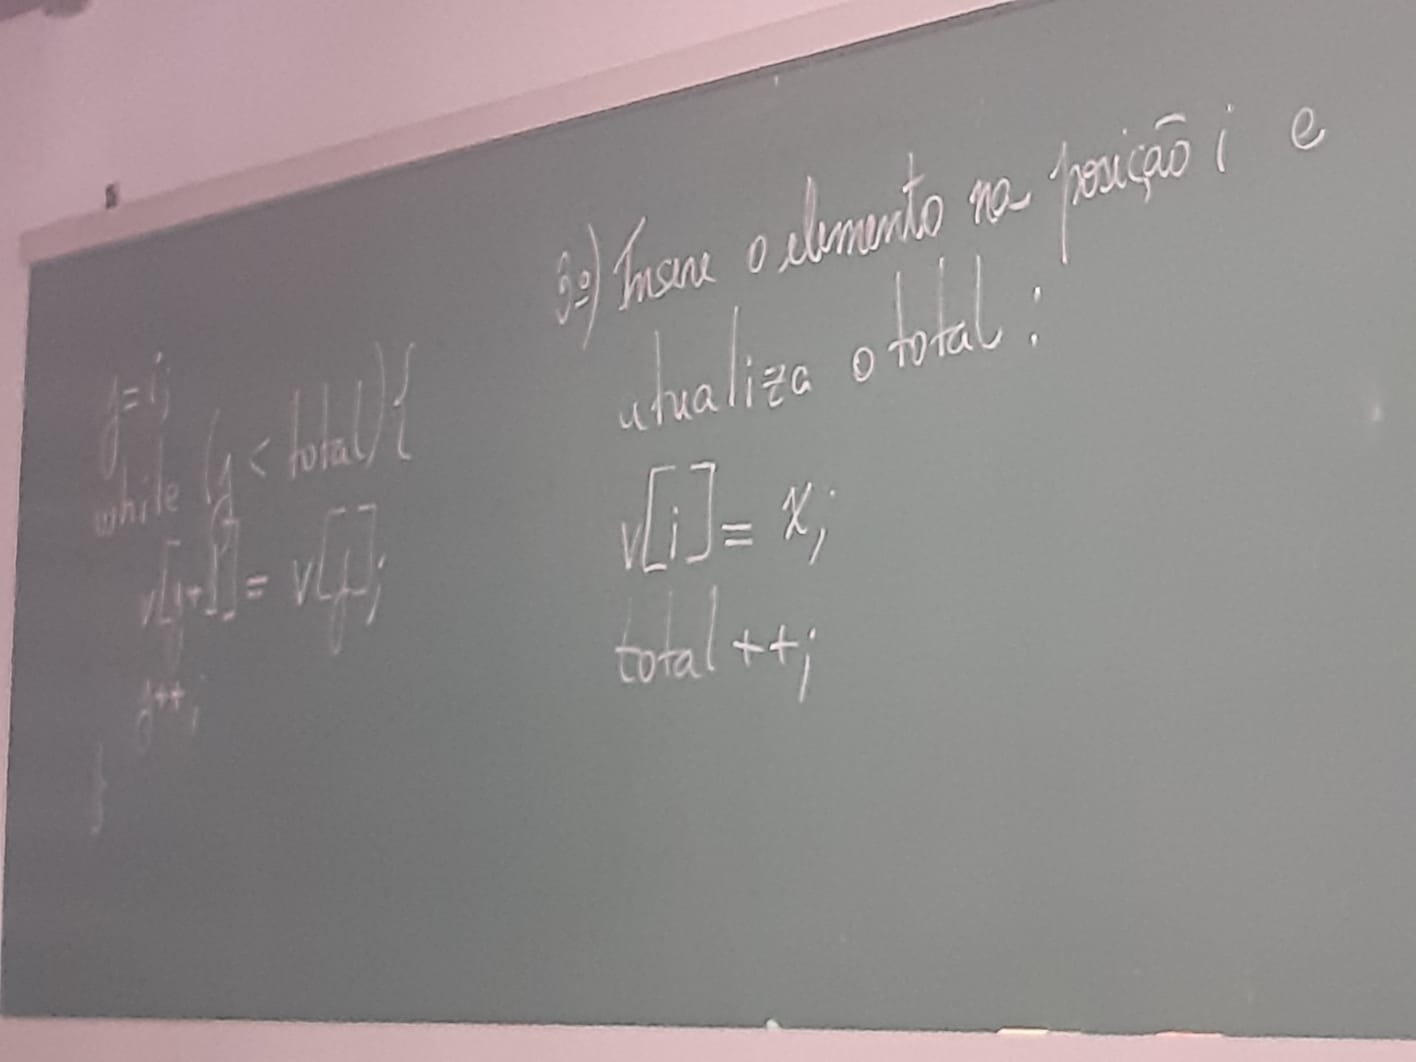 j=i;
while (j < total) {
v[j+1] = v[j];
j++;
}
3º) Insere o elemento na posição i e
atualiza o total:
v[i] = x;
total ++;